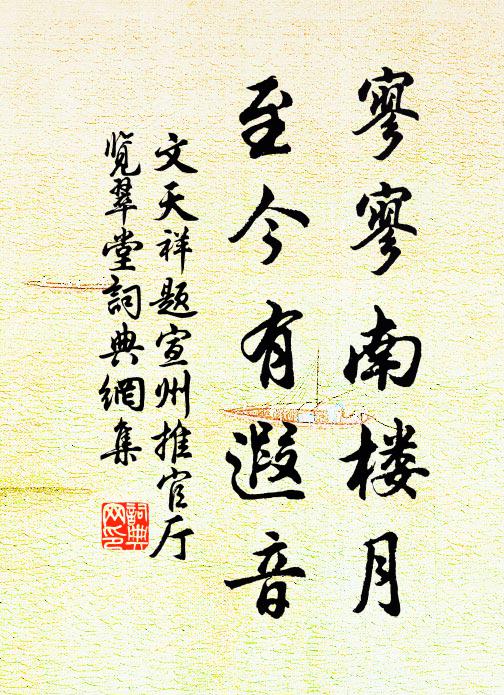 寥寥南楼月
至今有遐音
文天祥题宣州推官厅
览翠堂詞典網集
詞典
网印